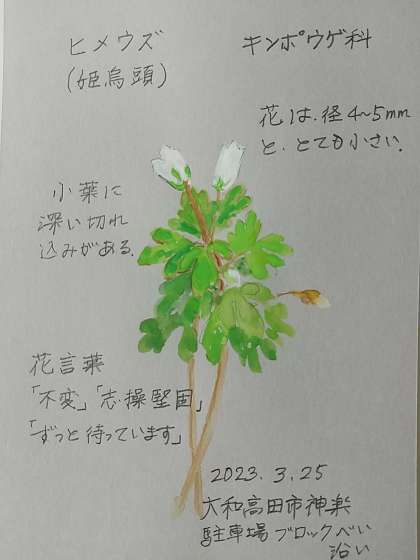 ヒメウズ
(姫烏頭)
キンポウゲ科
花は、径4~5mm
と、とても小さい。
小葉に
深い切れ
込みがある。
花言葉
「不変」「志操堅固」
「ずっと待っています」
2023.3.25
大和高田市神楽
駐車場ブロックべい
沿い